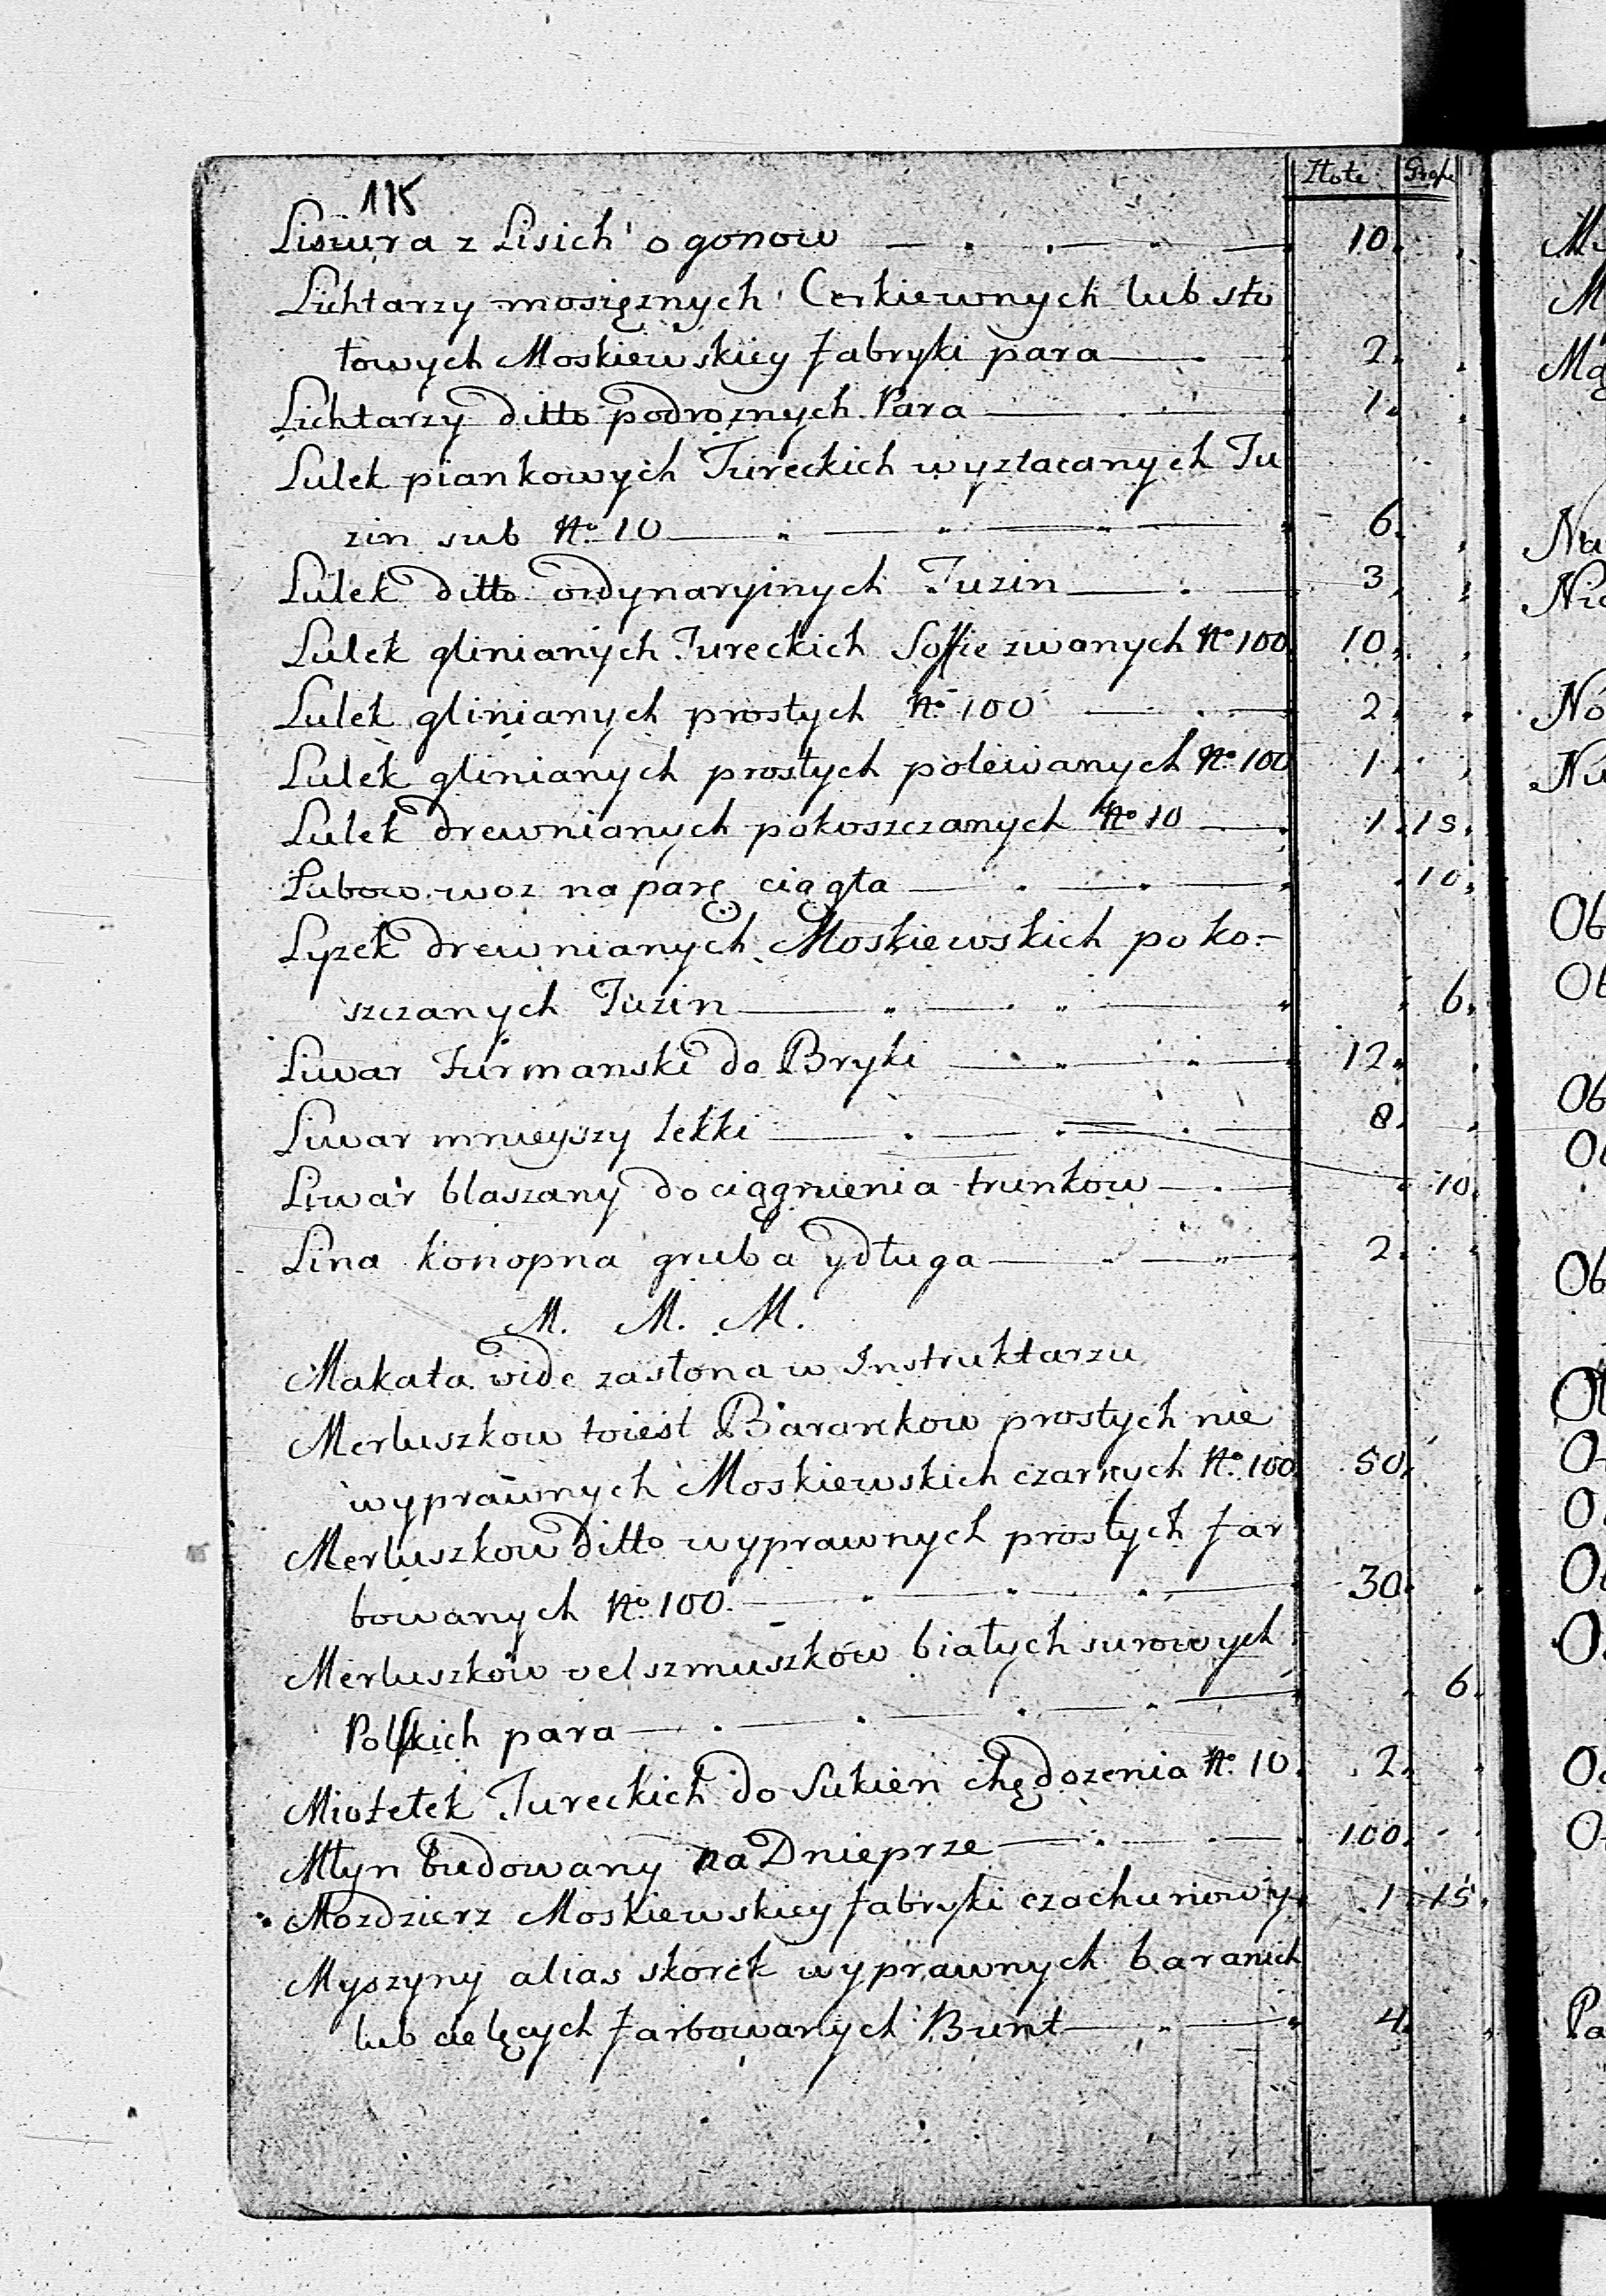 115
Złote Grosze
Liszura z Lisich ogonow 10.
Lichtarzy mosięznych Cerkiewnych lub sto
towych Moskiewskiey fabryki para 2.
Lichtarzy ditto podroznych Para 1.
Lulek piankowych Tureckich wyzłacanych Tu
zin sub No. 10 6.
Lulek ditto ordynaryinych Tuzin 3.
Lulek glinianych Tureckich Soffie zwanych No. 100 10.
Lulek glinianych prostych No. 100 2.
Lulek glinianych prostych polewanych No. 100 1.
Lulek drewnianych pokoszczanych No. 10 1. 15.
Łubow woz na parę ciągła 10.
Lyzek drewnianych Moskiewskich poko-
szczanych Tuzin 6.
Liwar Furmanski do Bryki 12.
Liwar mnieyszy lekki 8.
Liwar blaszany do ciągnienia trunkow 10.
Lina konopna gruba y długa 2.
M. M. M.
Makata vide zasłona w Instruktarzu
Merluszkow toiest Barankow prostych nie
wyprawnych Moskiewskich czarnych No. 100 50.
Merluszkow ditto wyprawnych prostych far
bowanych No. 100. 30.
Merluszkow vel szmuszkow białych surowych
Polskich para 6.
Miotełek Tureckich do Sukien chędozenia No. 10. 2.
Młyn budowany na Dnieprze 100.
Mozdzierz Moskiewskiey fabryki czachunowy 1. 15.
Myszyny alias skorek wyprawnych baranich
lub cielęcych farbowanych Bunt 4.